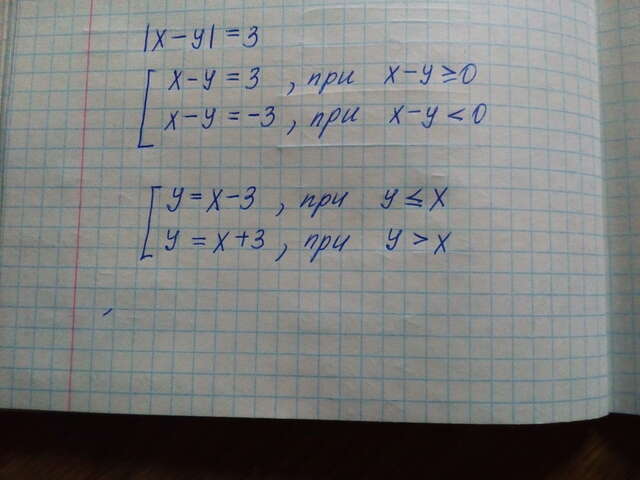 |x-y| = 3
x-y = 3 , при x-y ≥ 0
x-y = -3 , при x-y < 0
y = x-3 , при y ≤ x
y = x+3 , при y > x